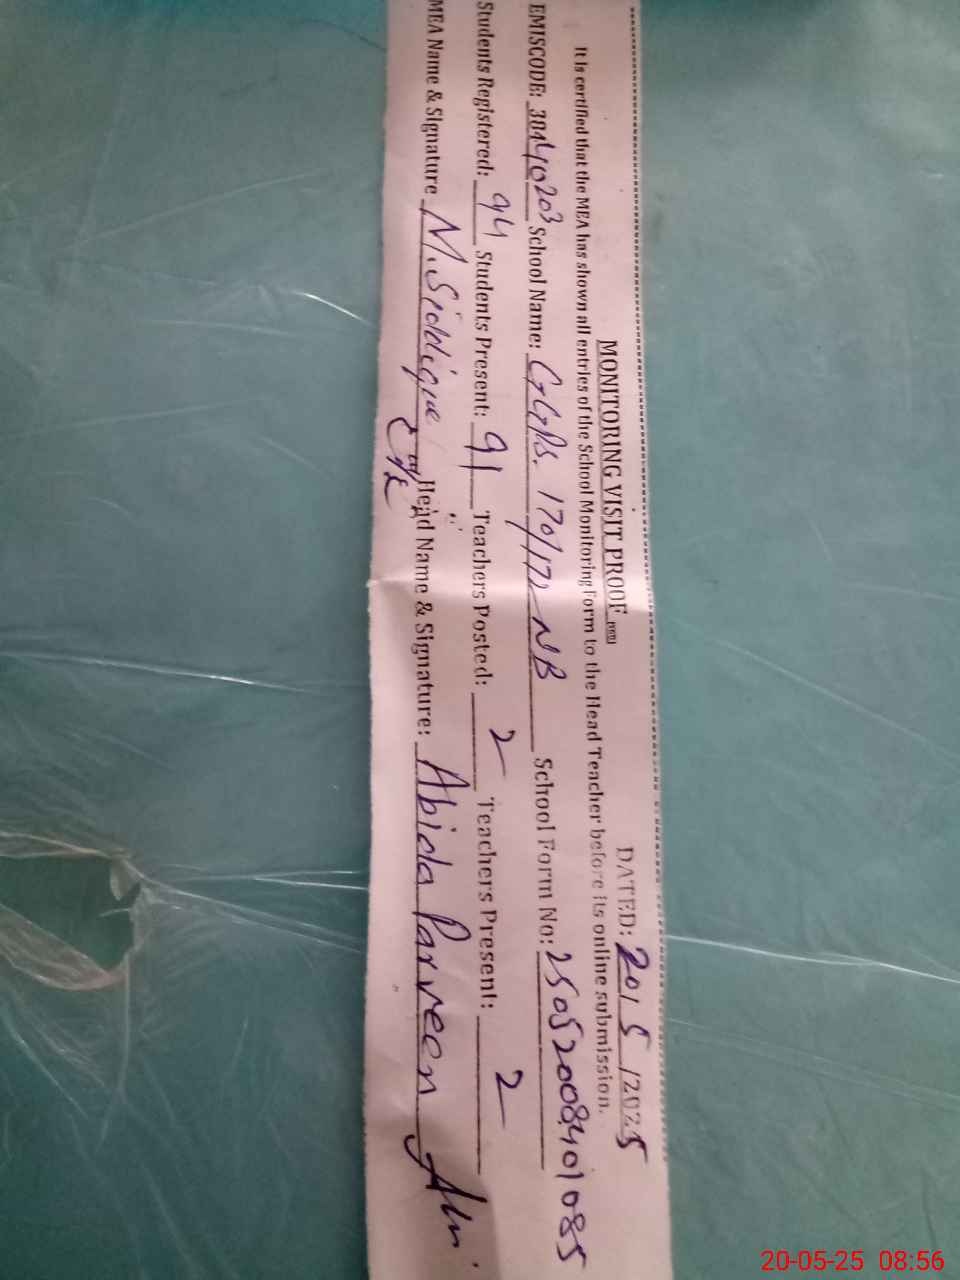 MONITORING VISIT PROOF
DATED: 20/5/2025
It is certified that the MEA has shown all entries of the School Monitoring Form to the Head Teacher before its online submission.
EMISCODE: 38440203 School Name: GGPS. 170/172-NB School Form No: 25052008401085
Students Registered: 94 Students Present: 91 Teachers Posted: 2 Teachers Present: 2
MEA Name & Signature M.Siddique Head Name & Signature: Abida Parveen
20-05-25 08:56